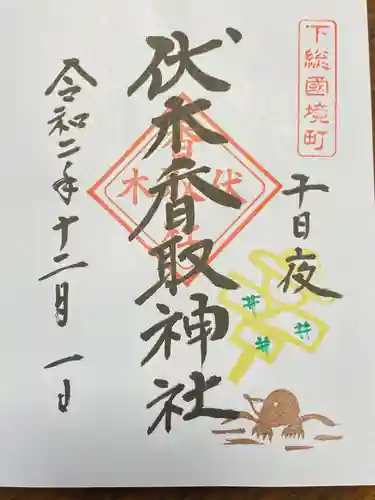 下総國境町
十日夜
伏木香取神社
伏木
令和二年十二月一日